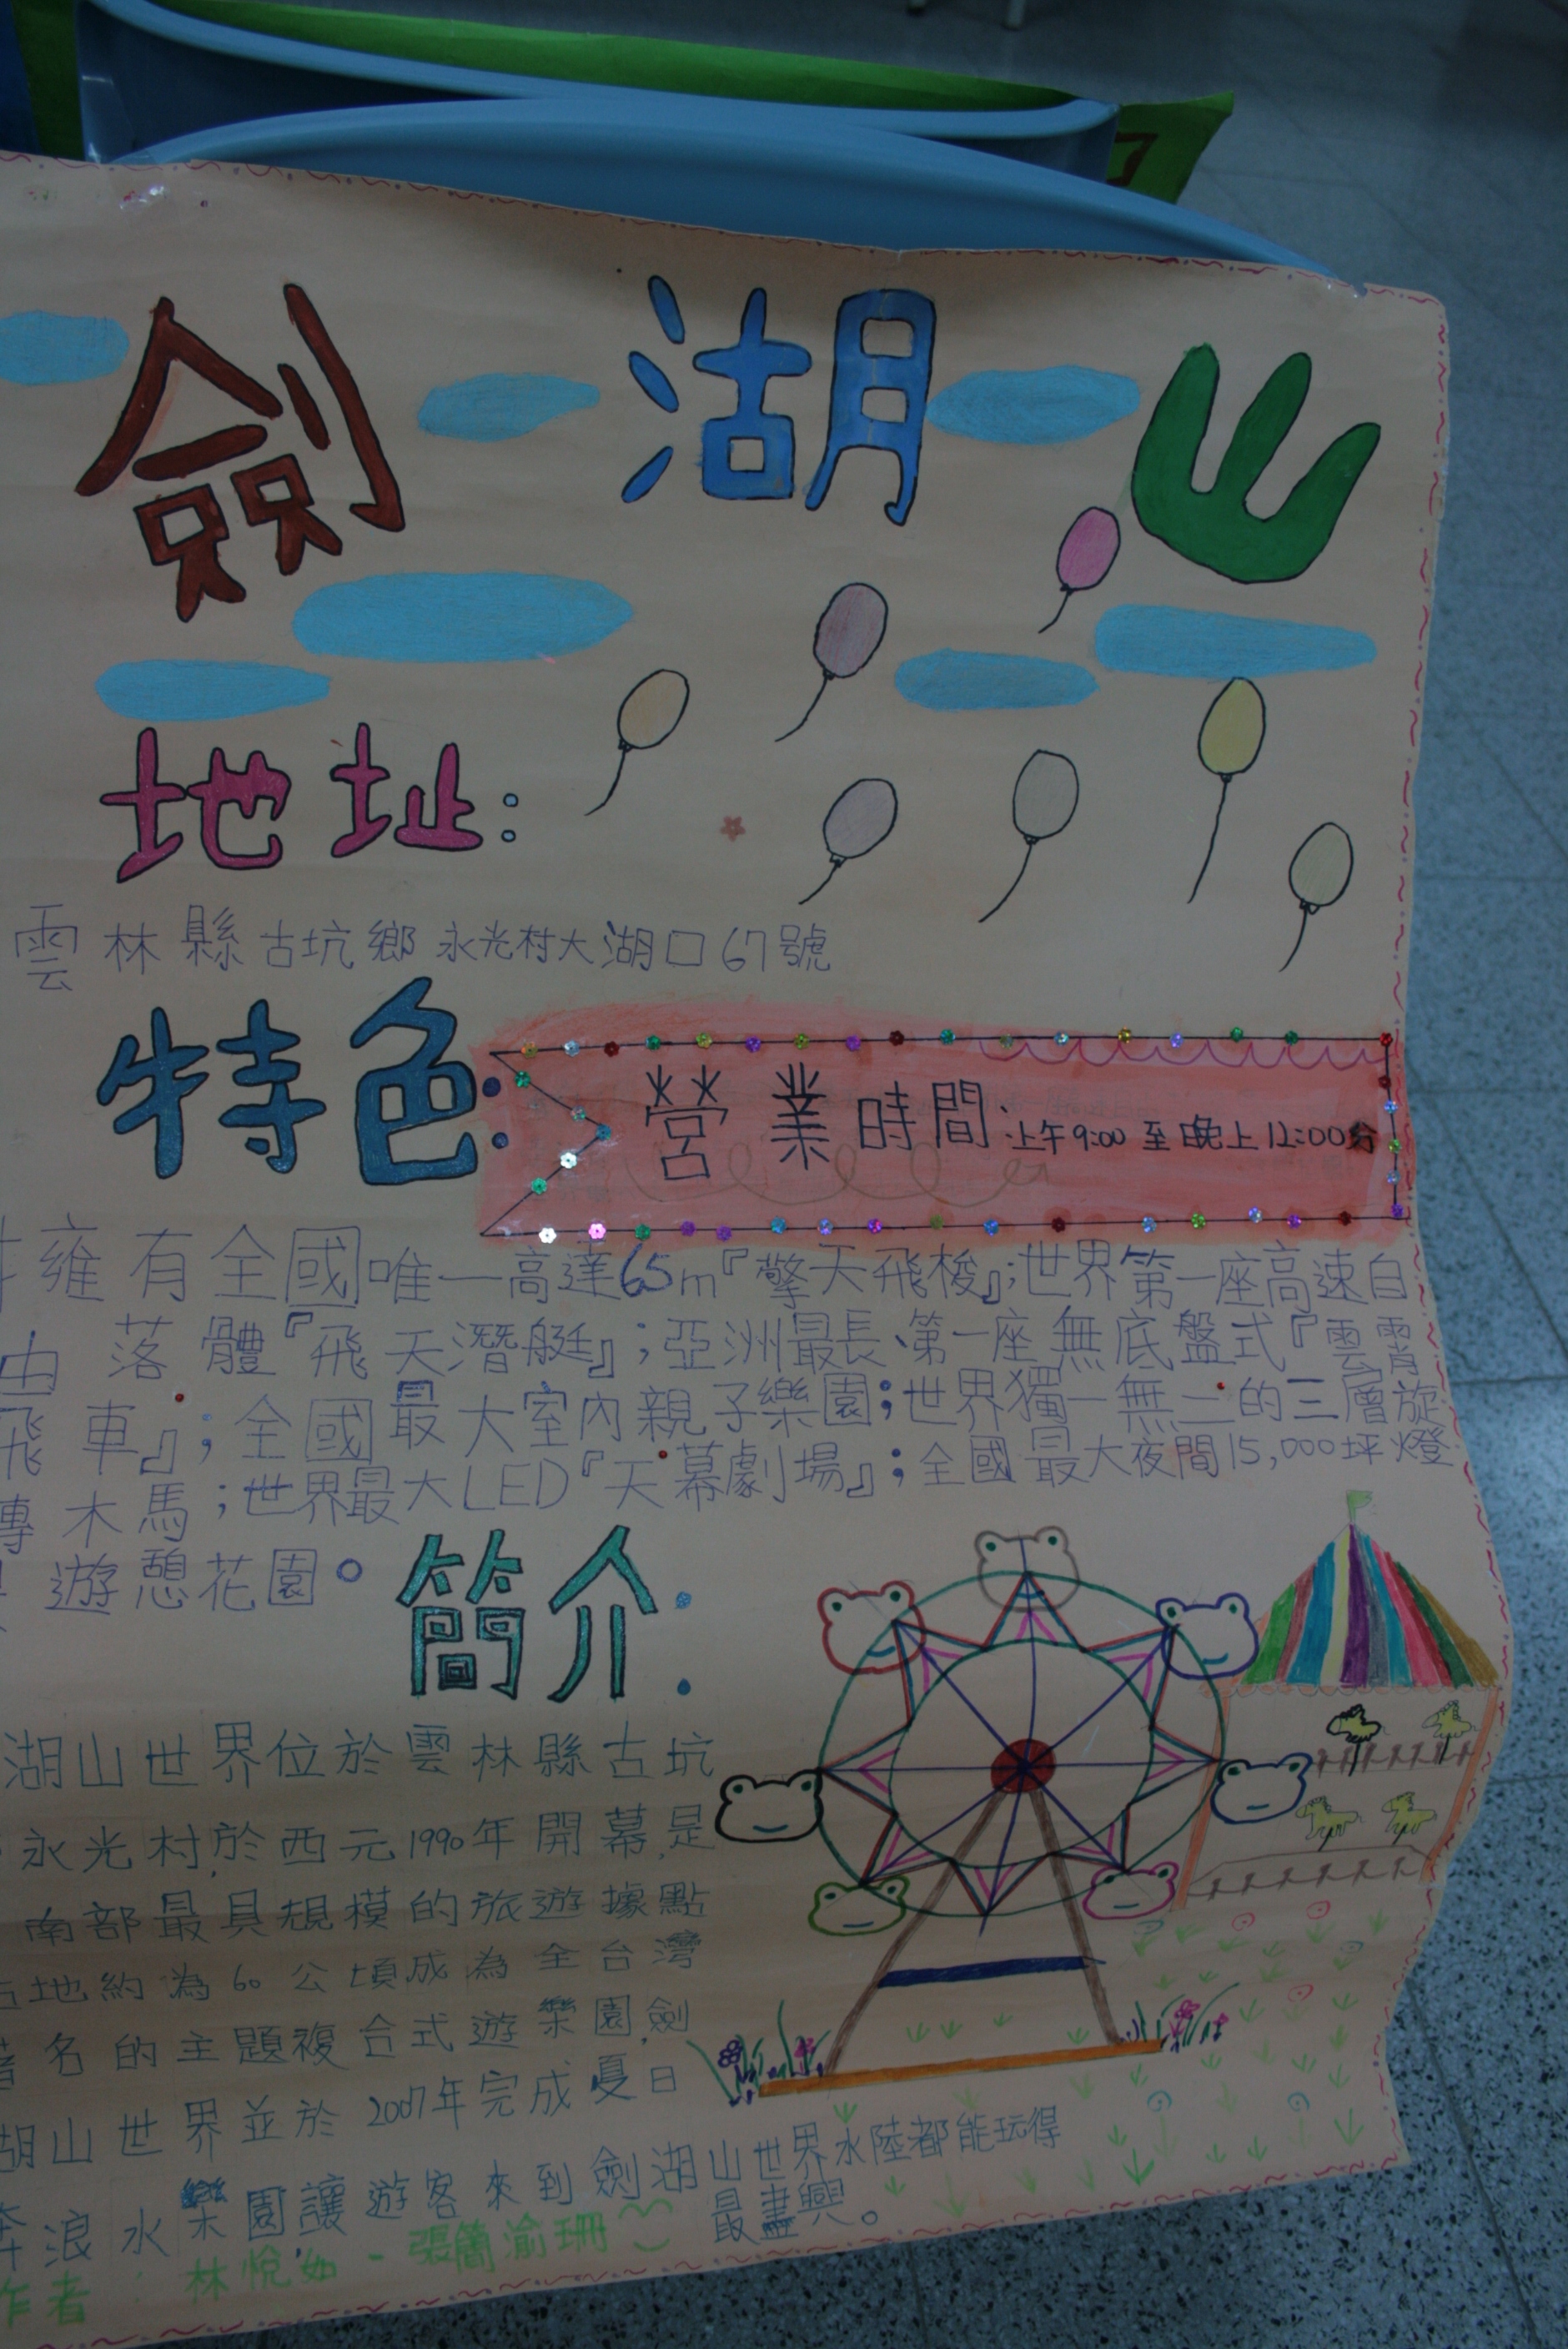 劍湖山
地址:
雲林縣古坑鄉永光村大湖口67號
特色:
營業時間:上午9:00至晚上12:00分
擁有全國唯一高達65m『擎天飛梭』;世界第一座高速自
由落體『飛天潛艇』;亞洲最長、第一座無底盤式『雲霄
飛車』;全國最大室內親子樂園;世界獨一無二的三層旋
轉木馬;世界最大LED『天幕劇場』;全國最大夜間15,000坪燈
遊憩花園。
簡介:
湖山世界位於雲林縣古坑
永光村,於西元1990年開幕,是
南部最具規模的旅遊據點
占地約為60公頃成為全台灣
著名的主題複合式遊樂園,劍
湖山世界並於2007年完成夏日
奔浪水樂園,讓遊客來到劍湖山世界水陸都能玩得
最盡興。
作者:林悅如-張簡渝珊